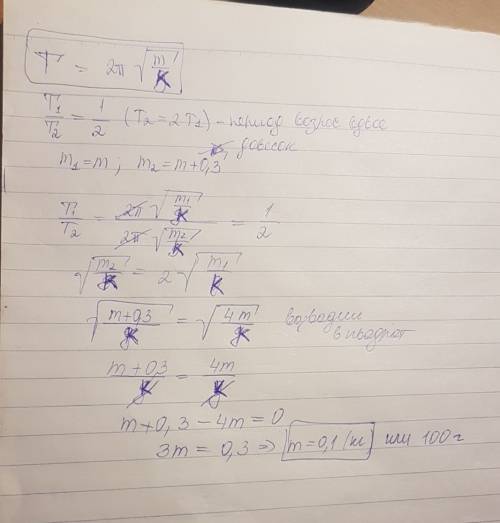 T = 2π √(m/k)
T1/T2 = 1/2 (T2 = 2T1) - период возрос вдвое
m1 = m ; m2 = m + 0,3 довесок
T1/T2 = 2π √(m1/k) / 2π √(m2/k) = 1/2
√(m2/k) = 2 √(m1/k)
√(m+0,3/k) = √(4m/k) возводим
в квадрат
m+0,3/k = 4m/k
m+0,3 - 4m = 0
3m = 0,3 => m = 0,1 (кг) или 100 г